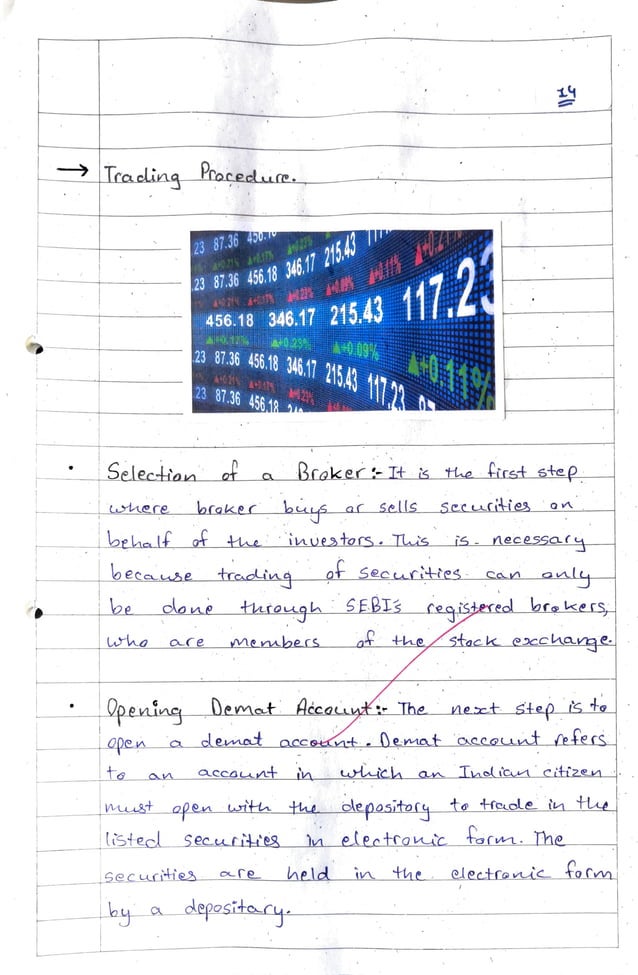 14
→ Trading Procedure.
23 87.36 456.18 +0.23% 215.43
23 87.36 456.18 346.17 215.43 +0.11%
456.18 346.17 215.43 117.23
+0.23% +0.09% +0.11%
23 87.36 456.18 346.17 215.43 117.23
23 87.36 456.18
• Selection of a Broker :- It is the first step
where broker buys or sells securities on
behalf of the investors. This is necessary
because trading of securities can only
be done through SEBI's registered brokers,
who are members of the stock exchange.
• Opening Demat Account :- The next step is to
open a demat account. Demat account refers
to an account in which an Indian citizen
must open with the depository to trade in the
listed securities in electronic form. The
securities are held in the electronic form
by a depositary.